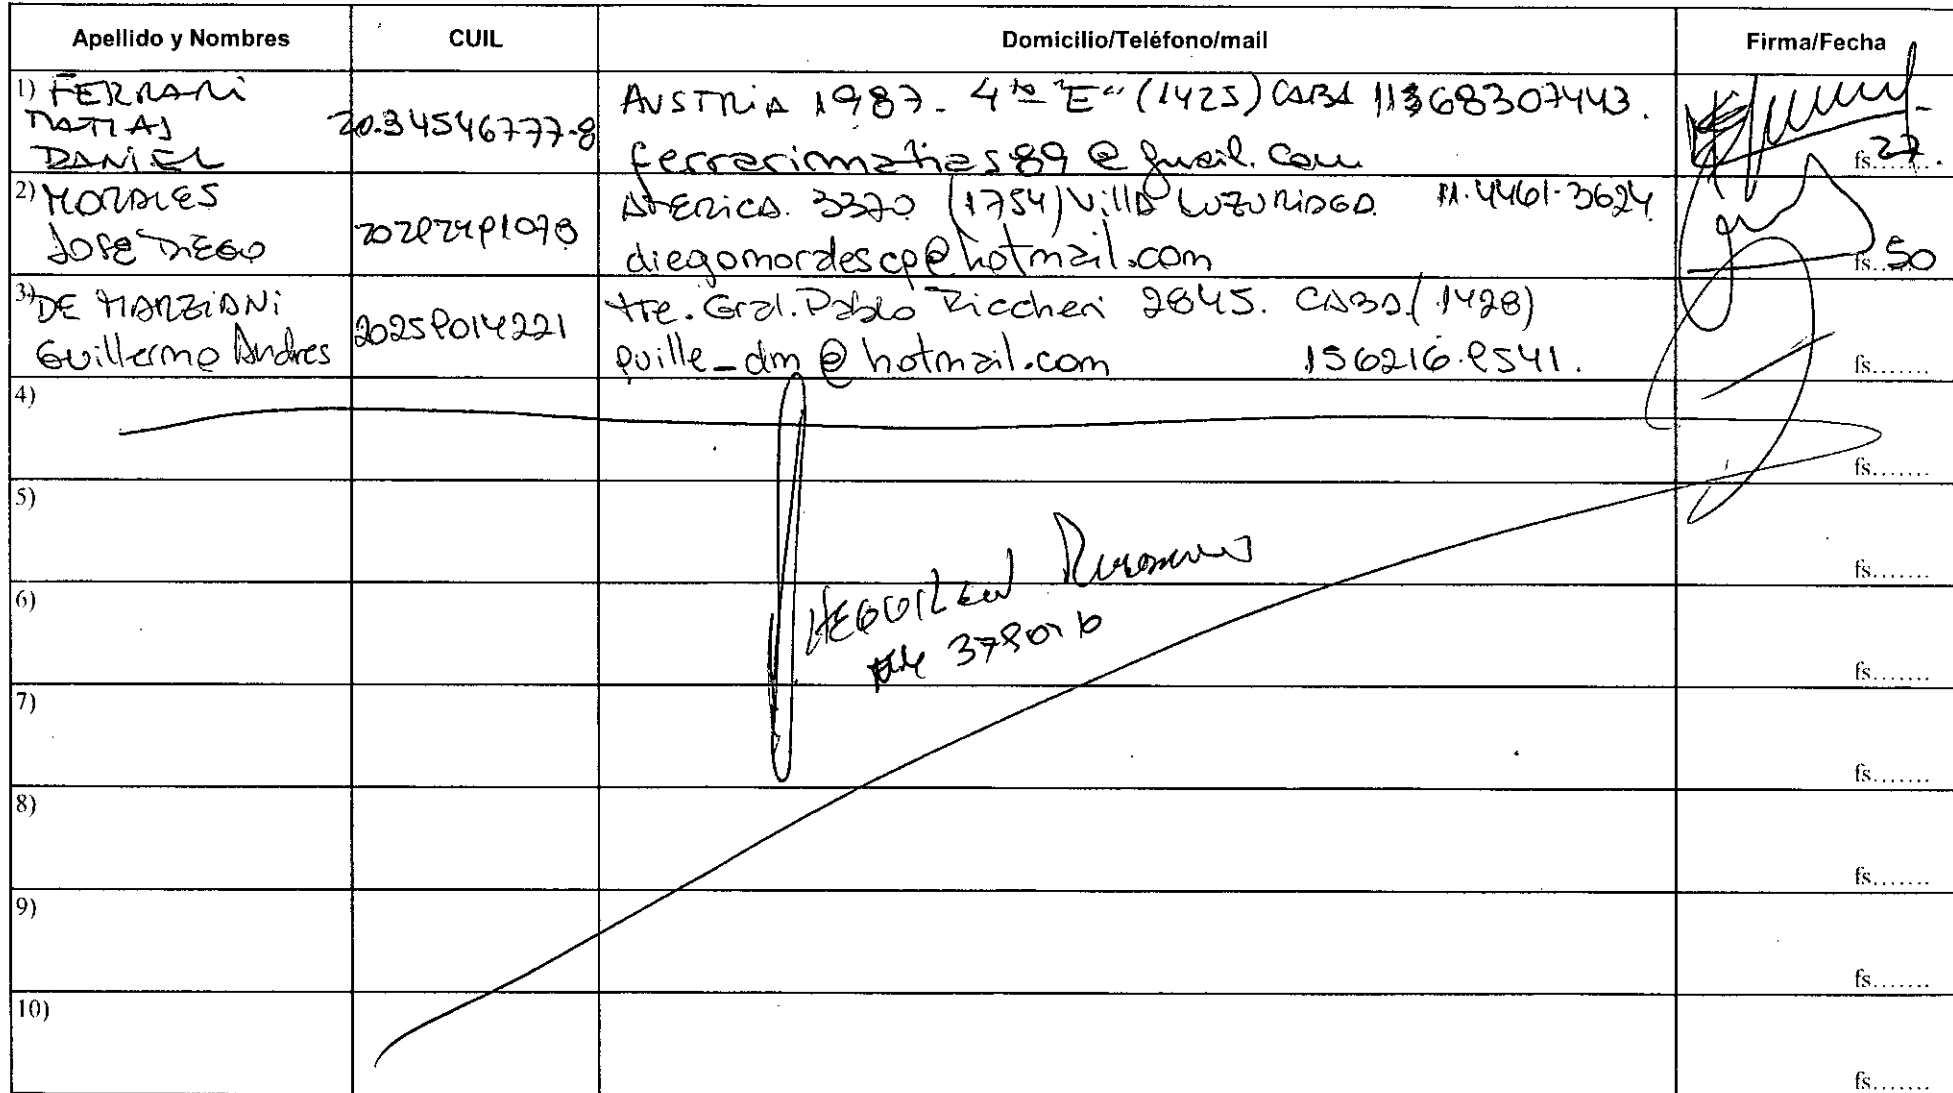 Apellido y Nombres CUIL Domicilio/Teléfono/mail Firma/Fecha
1) FERRARI
MATIAS
DANIEL
20.34546777-8
AUSTRIA 1987 - 4to "E" (1425) CABA 11368307443.
ferrarimatias89@gmail.com
fs. 27.
2) MORALES
JOSE DIEGO
20292491078
AMERICA. 3370 (1754) Villa LUZURIAGA 11.4461-3624
diegomoralescp@hotmail.com
fs. 50
3) DE MARZIANI
Guillermo Andres
20259014221
Tte. Gral. Pablo Riccheri 2845. CABA (1428)
guille_dm@hotmail.com 156216.9541.
fs.......
4)
fs.......
5)
fs.......
6)
fs.......
7)
fs.......
8)
fs.......
9)
fs.......
10)
fs.......